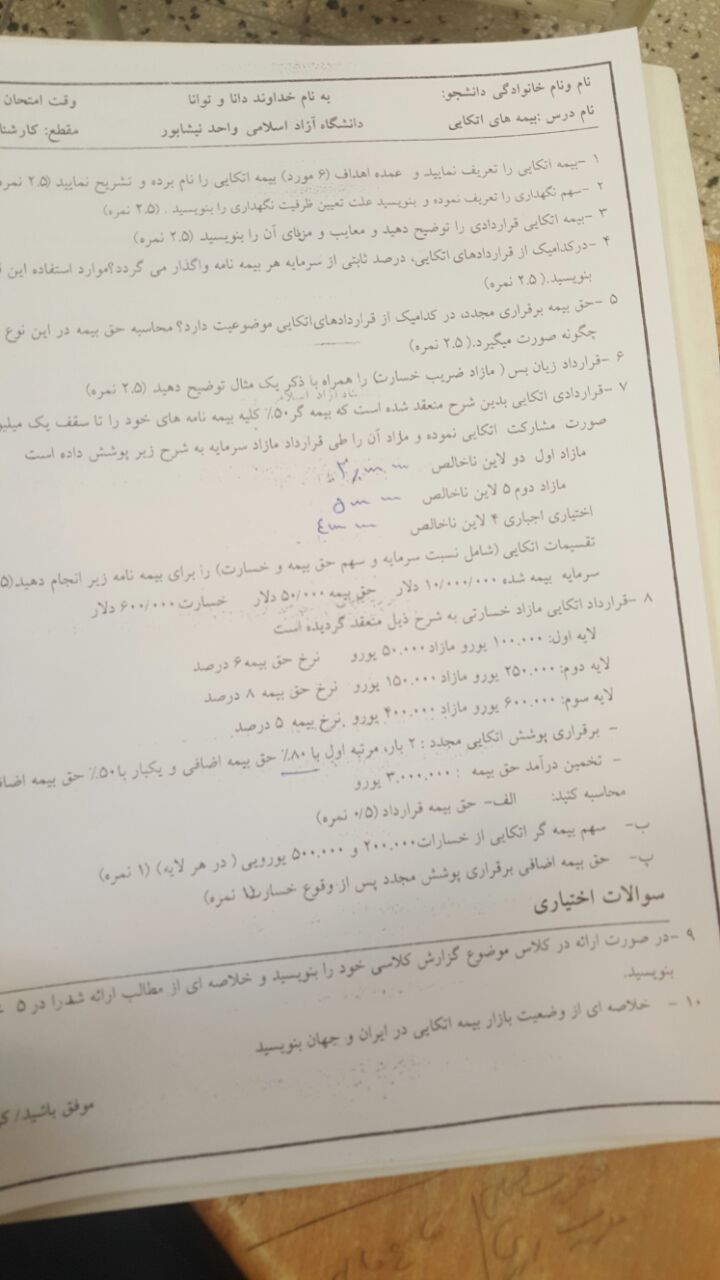 نام ونام خانوادگی دانشجو: به نام خداوند دانا و توانا وقت امتحان
نام درس :بیمه های اتکایی دانشگاه آزاد اسلامی واحد نیشابور مقطع: کارشنا
۱ -بیمه اتکایی را تعریف نمایید و عمده اهداف (۶ مورد) بیمه اتکایی را نام برده و تشریح نمایید (۲.۵ نمره
۲ -سهم نگهداری را تعریف نموده و بنویسید علت تعیین ظرفیت نگهداری را بنویسید . (۲.۵ نمره)
۳ -بیمه اتکایی قراردادی را توضیح دهید و معایب و مزایای آن را بنویسید (۲.۵ نمره)
۴ -درکدامیک از قراردادهای اتکایی، درصد ثابتی از سرمایه هر بیمه نامه واگذار می گردد؟موارد استفاده این
بنویسید.( ۲.۵ نمره)
۵ -حق بیمه برقراری مجدد، در کدامیک از قراردادهای‌اتکایی موضوعیت دارد؟ محاسبه حق بیمه در این نوع
چگونه صورت میگیرد.( ۲.۵ نمره)
۶ -قرارداد زیان بس ( مازاد ضریب خسارت) را همراه با ذکر یک مثال توضیح دهید (۲.۵ نمره)
۷ -قراردادی اتکایی بدین شرح منعقد شده است که بیمه گر۵۰٪ کلیه بیمه نامه های خود را تا سقف یک میلیو
صورت مشارکت اتکایی نموده و مازاد آن را طی قرارداد مازاد سرمایه به شرح زیر پوشش داده است
مازاد اول دو لاین ناخالص
مازاد دوم ۵ لاین ناخالص
اختیاری اجباری ۴ لاین ناخالص
تقسیمات اتکایی (شامل نسبت سرمایه و سهم حق بیمه و خسارت) را برای بیمه نامه زیر انجام دهید(۵
سرمایه بیمه شده ۱۰/۰۰۰/۰۰۰ دلار حق بیمه ۵۰/۰۰۰ دلار خسارت ۶۰۰/۰۰۰ دلار
۸ -قرارداد اتکایی مازاد خسارتی به شرح ذیل منعقد گردیده است
لایه اول: ۱۰۰.۰۰۰ یورو مازاد ۵۰.۰۰۰ یورو نرخ حق بیمه ۶ درصد
لایه دوم: ۲۵۰.۰۰۰ یورو مازاد ۱۵۰.۰۰۰ یورو نرخ حق بیمه ۸ درصد
لایه سوم: ۶۰۰.۰۰۰ یورو مازاد ۴۰۰.۰۰۰ یورو نرخ بیمه ۵ درصد
- برقراری پوشش اتکایی مجدد : ۲ بار، مرتبه اول با ۸۰٪ حق بیمه اضافی و یکبار با ۵۰٪ حق بیمه اضاف
- تخمین درآمد حق بیمه : ۳.۰۰۰.۰۰۰ یورو
محاسبه کنید: الف- حق بیمه قرارداد (۰/۵ نمره)
ب- سهم بیمه گر اتکایی از خسارات ۲۰۰.۰۰۰ و ۵۰۰.۰۰۰ یورویی ( در هر لایه) (۱ نمره)
پ- حق بیمه اضافی برقراری پوشش مجدد پس از وقوع خسارت(۱ نمره)
سوالات اختیاری
۹ -در صورت ارائه در کلاس موضوع گزارش کلاسی خود را بنویسید و خلاصه ای از مطالب ارائه شده‌را در ۵
بنویسید.
۱۰ - خلاصه ای از وضعیت بازار بیمه اتکایی در ایران و جهان بنویسید
موفق باشید/